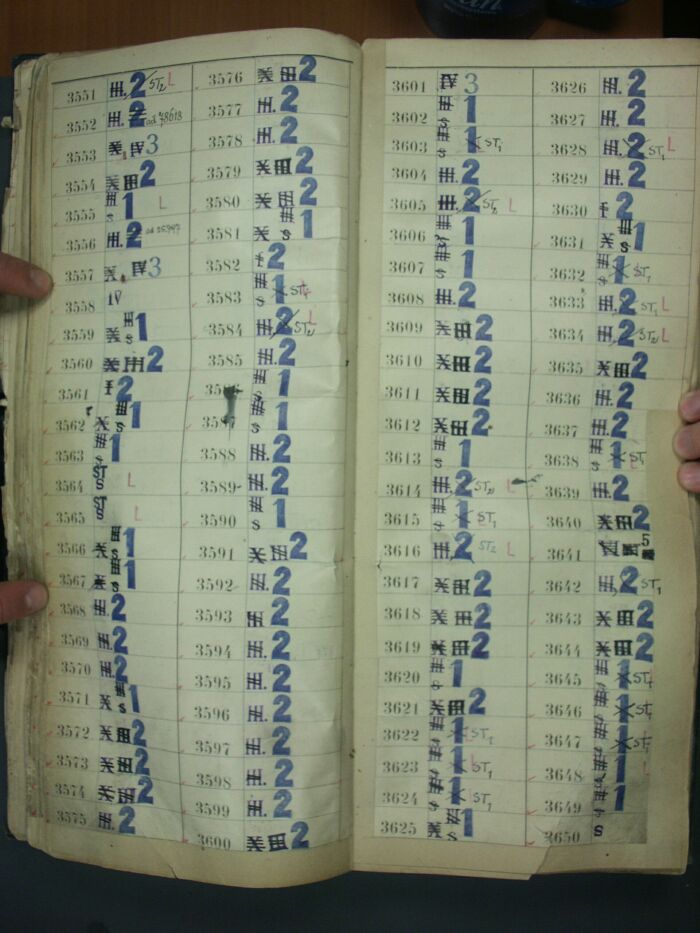 3551 III. 2 ST2 L
3552 III. 2 od 78618
3553 X IV 3
3554 X III 2
3555 III S 1 L
3556 III. 2
3557 X IV 3
3558 IV
3559 X III S 1
3560 X III 2
3561 I 2
3562 X III S 1
3563 III S 1
3564 ST S L
3565 ST S L
3566 X III S 1
3567 X III S 1
3568 III. 2
3569 III. 2
3570 III. 2
3571 X III S 1
3572 X III 2
3573 X III 2
3574 X III 2
3575 III. 2
3576 X III 2
3577 III. 2
3578 III. 2
3579 X III 2
3580 X III 2
3581 X III S 1
3582 I 2
3583 III S 1 ST1
3584 III. 2 ST2 L
3585 III. 2
III S 1
III S 1
3588 III. 2
3589 III. 2
3590 III S 1
3591 X III 2
3592 III. 2
3593 III. 2
3594 III. 2
3595 III. 2
3596 III. 2
3597 III. 2
3598 III. 2
3599 III. 2
3600 X III 2
3601 IV 3
3602 III S 1
3603 III S 1 ST1
3604 III. 2
3605 III. 2 ST2 L
3606 III S 1
3607 III S 1
3608 III. 2
3609 X III 2
3610 X III 2
3611 X III 2
3612 X III 2
3613 III S 1
3614 III. 2 ST2 L
3615 III S 1 ST1
3616 III. 2 ST2 L
3617 X III 2
3618 X III 2
3619 X III 2
3620 III S 1
3621 X III 2
3622 III S 1 ST1
3623 III S 1 ST1
3624 III S 1 ST1
3625 X III S 1
3626 III. 2
3627 III. 2
3628 III. 2 ST1 L
3629 III. 2
3630 I 2
3631 X III S 1
3632 III S 1 ST1
3633 III. 2 ST1 L
3634 III. 2 ST2 L
3635 X III 2
3636 III. 2
3637 III. 2
3638 III S 1 ST1
3639 III. 2
3640 X III 2
3641 5
3642 III. 2 ST1
3643 X III 2
3644 X III 2
3645 III S 1 ST1
3646 III S 1 ST1
3647 III S 1 ST1
3648 III S 1
3649 III S 1
3650 S